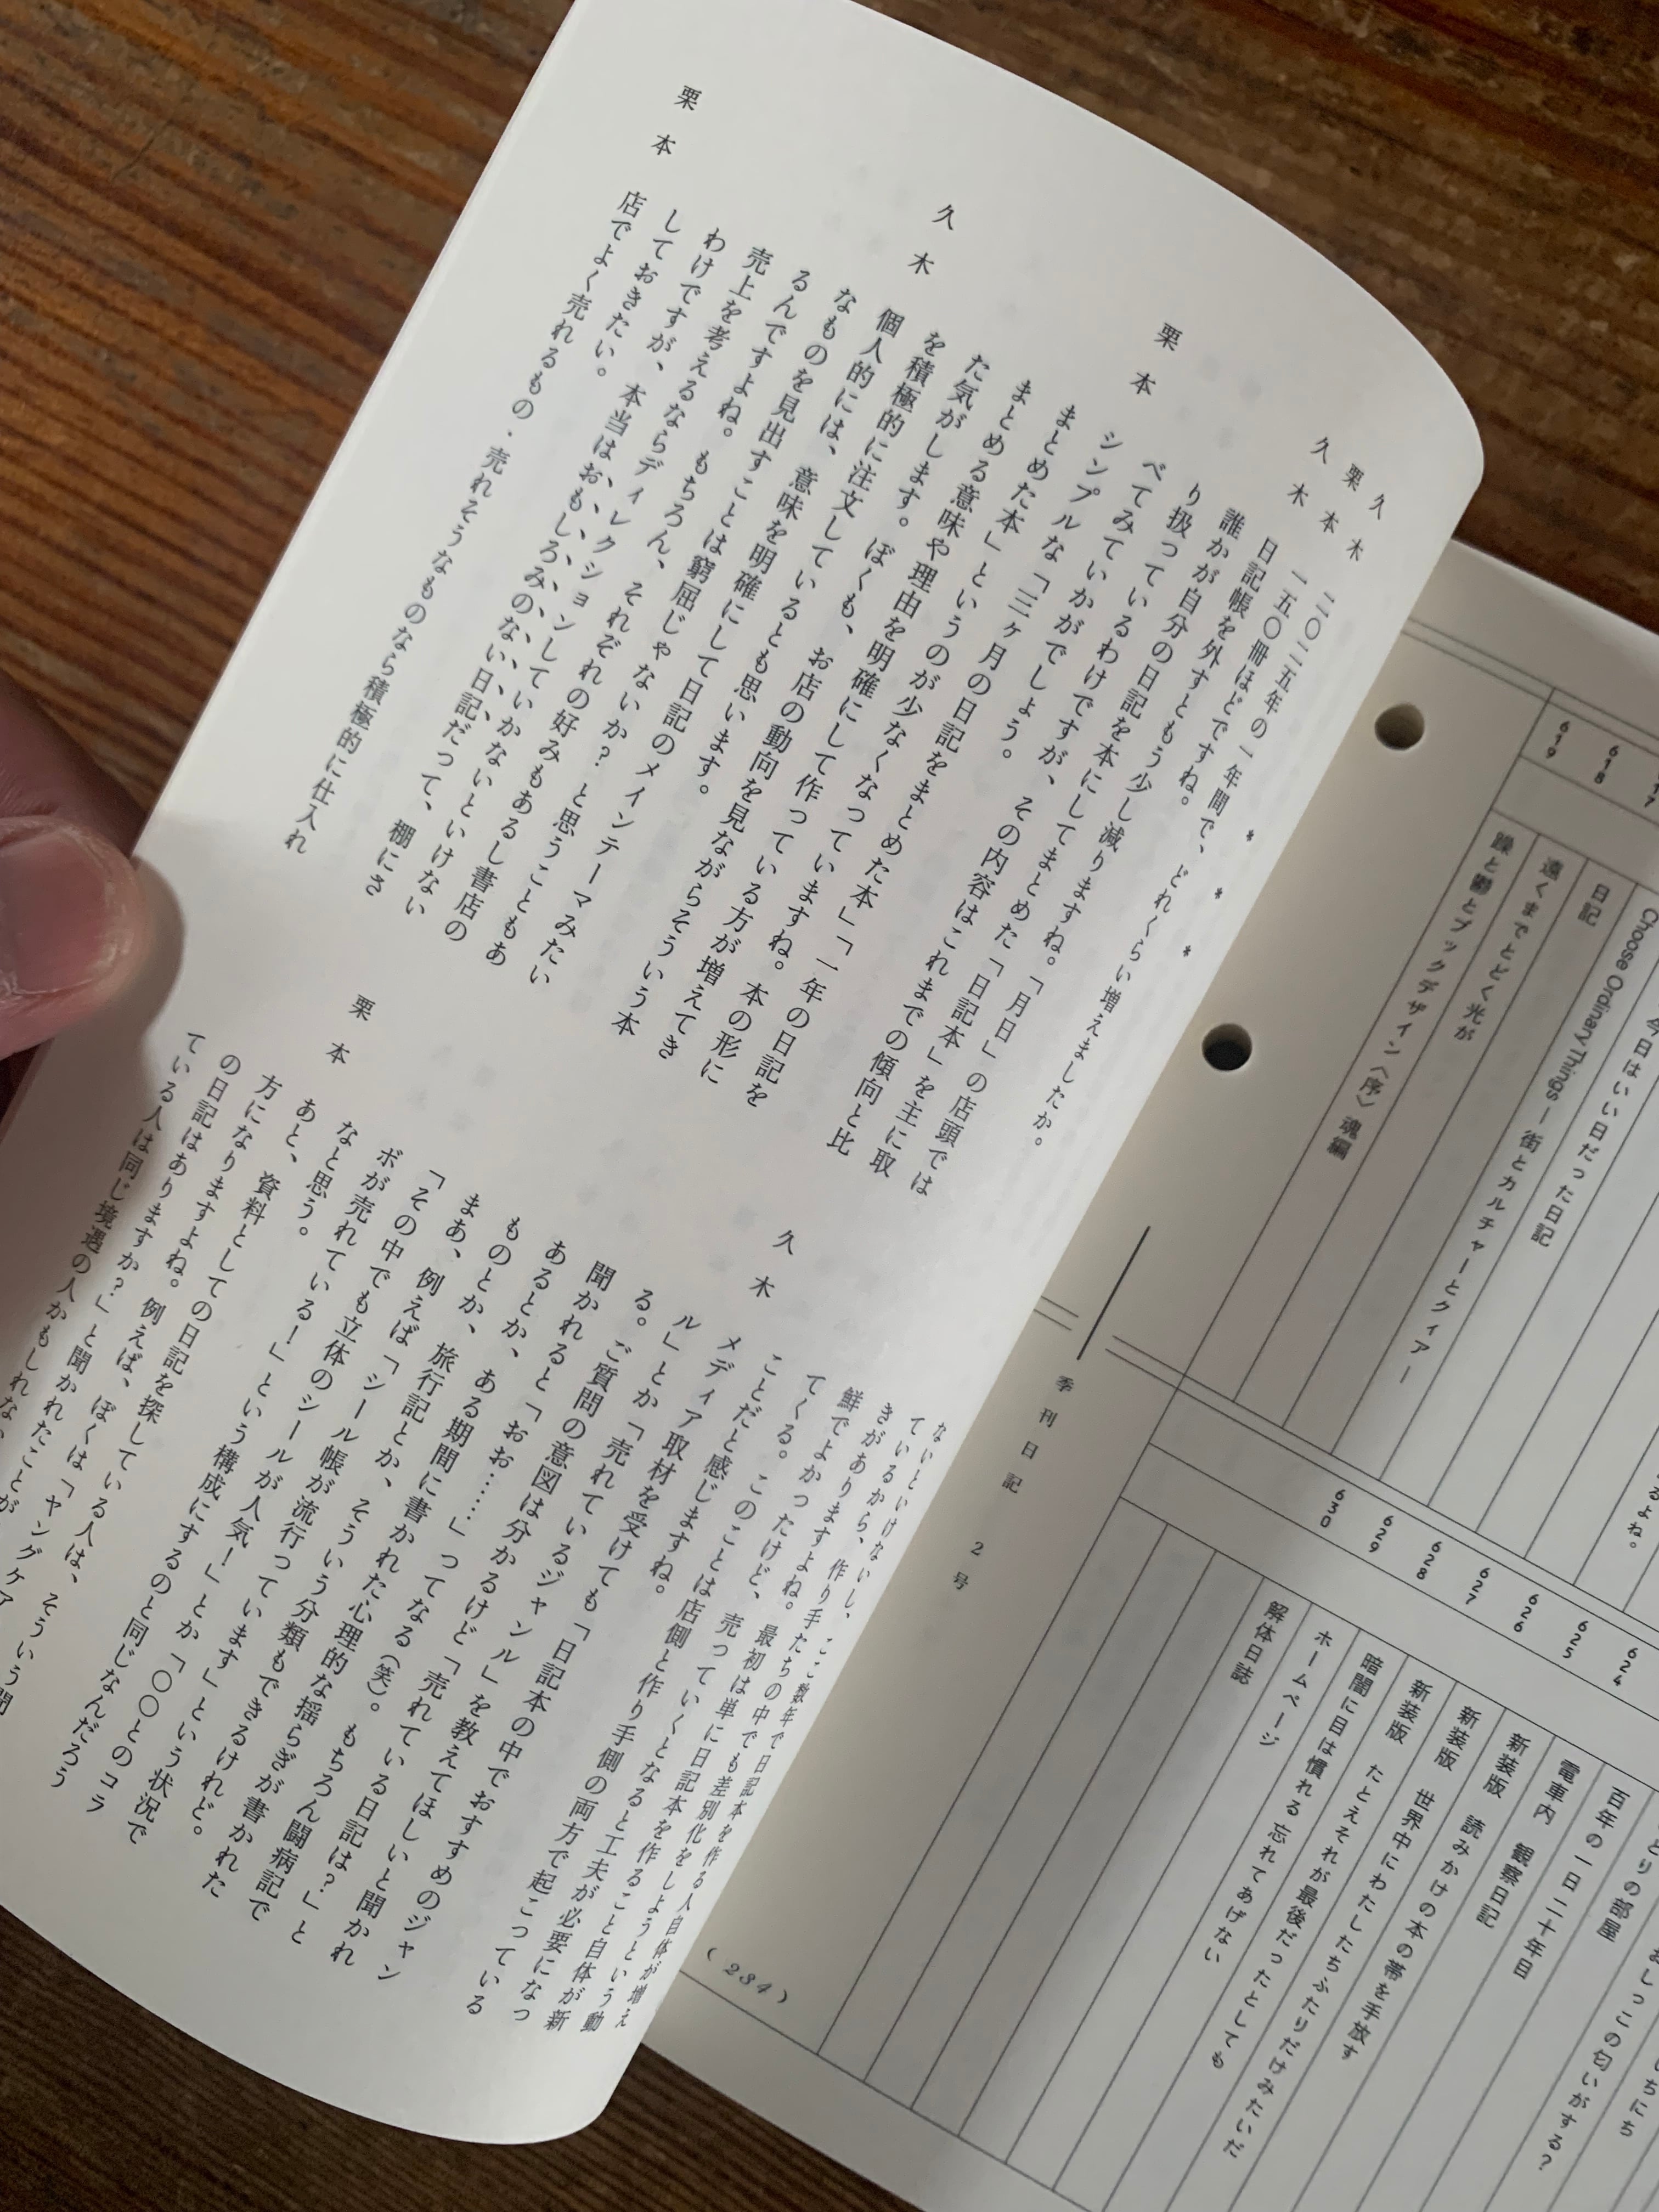 ＊　＊　＊
久木　二〇二五年の一年間で、どれくらい増えましたか。
栗本　一五〇冊ほどですね。
久木　日記帳を外すともう少し減りますね。「月日」の店頭では
誰かが自分の日記を本にしてまとめた「日記本」を主に取
り扱っているわけですが、その内容はこれまでの傾向と比
べてみていかがでしょう。
栗本　シンプルな「三ヶ月の日記をまとめた本」「一年の日記を
まとめた本」というのが少なくなっていますね。本の形に
まとめる意味や理由を明確にして作っている方が増えてき
た気がします。ぼくも、お店の動向を見ながらそういう本
を積極的に注文しているとも思います。
久木　個人的には、意味を明確にして日記のメインテーマみたい
なものを見出すことは窮屈じゃないか？と思うこともあ
るんですよね。もちろん、それぞれの好みもあるし書店の
売上を考えるならディレクションしていかないといけない
わけですが、本当はおもしろみのない日記だって、棚にさ
しておきたい。
栗本　店でよく売れるもの・売れそうなものなら積極的に仕入れ
ないといけないし、ここ数年で日記本を作る人自体が増え
ているから、作り手たちの中でも差別化をしようという動
きがありますよね。最初は単に日記本を作ること自体が新
鮮でよかったけど、売っていくとなると工夫が必要になっ
てくる。このことは店側と作り手側の両方で起こっている
ことだと感じますね。
久木　メディア取材を受けても「日記本の中でおすすめのジャン
ル」とか「売れているジャンル」を教えてほしいと聞かれ
る。ご質問の意図は分かるけど「売れている日記は？」と
聞かれると「おお……」ってなる（笑）。もちろん闘病記で
あるとか、ある期間に書かれた心理的な揺らぎが書かれた
ものとか、旅行記とか、そういう分類もできるけれど。
まあ、例えば「シール帳が流行っています」という状況で
「その中でも立体のシールが人気！」とか「〇〇とのコラ
ボが売れている！」という構成にするのと同じなんだろう
なと思う。
栗本　あと、資料としての日記を探している人は、そういう聞
方になりますよね。例えば、ぼくは「ヤングケア
の日記はありますか？」と聞かれたことが
ている人は同じ境遇の人かもしれな
季刊日記　2号
(234)
るよね。
今日はいい日だった日記
618
Choose Ordinary Things ー 街とカルチャーとクィアー
619
日記
遠くまでとどく光が
躁と鬱とブックデザイン〈序〉魂編
624
おしっこの匂いがする？
625
とりの部屋
626
百年の一日 二十年目
627
電車内　観察日記
628
新装版　読みかけの本の帯を手放す
629
新装版　世界中にわたしたちふたりだけみたいだ
630
新装版　たとえそれが最後だったとしても
暗闇に目は慣れる 忘れてあげない
ホームページ
解体日誌